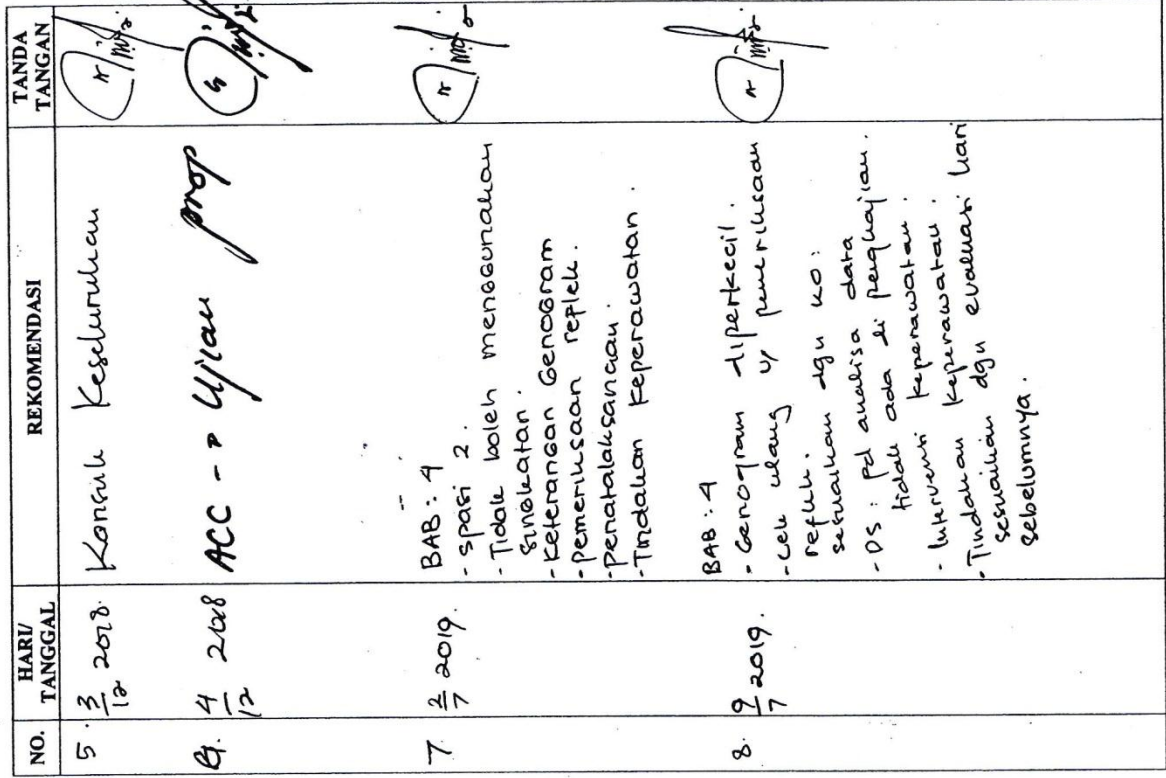 NO.
HARI/
TANGGAL
REKOMENDASI
TANDA
TANGAN
5.
3/12 2018.
Konsul Keseluruhan
4/12 2018
ACC -> Ujian prop
7
2/7 2019.
BAB : 4
- spasi 2.
- Tidak boleh menggunakan
singkatan.
- Keterangan Genogram
- Pemeriksaan reflek.
- Penatalaksanaan.
- Tindakan keperawatan.
8.
9/7 2019.
BAB : 4
- Genogram diperkecil.
- Cek ulang u/ pemeriksaan
reflek.
sesuaikan dgn KO :
- DS : pd analisa data
tidak ada di pengkajian.
- Intervensi keperawatan.
- Tindakan keperawatan.
sesuaikan dgn evaluasi hari
sebelumnya.